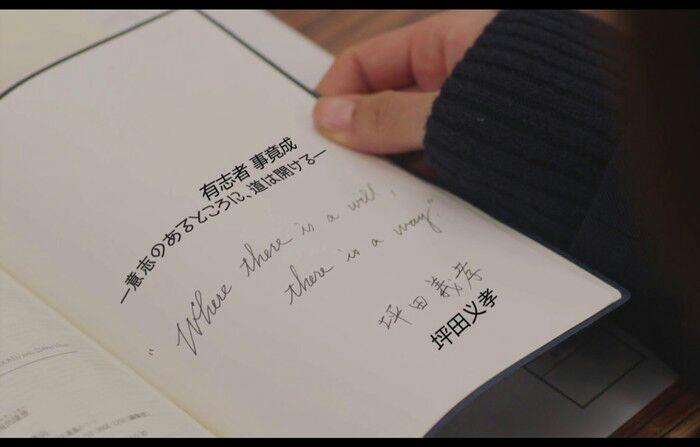 有志者 事竟成
—意志のあるところに、道は開ける—
"Where there is a will,
there is a way".
坪田義孝
坪田义孝